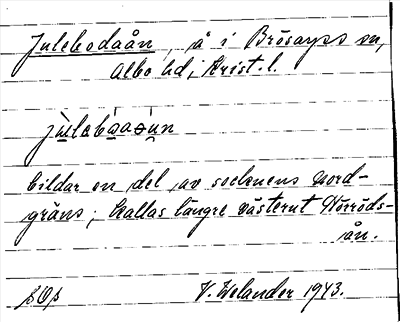 Julebodaån, å i Brösarps sn,
Albo hd, Krist. l.
jùlebòaɷ́u̇n
bildar en del av socknens nord-
gräns; kallas längre västerut Hörröds-
ån.
V. Welander 1943.